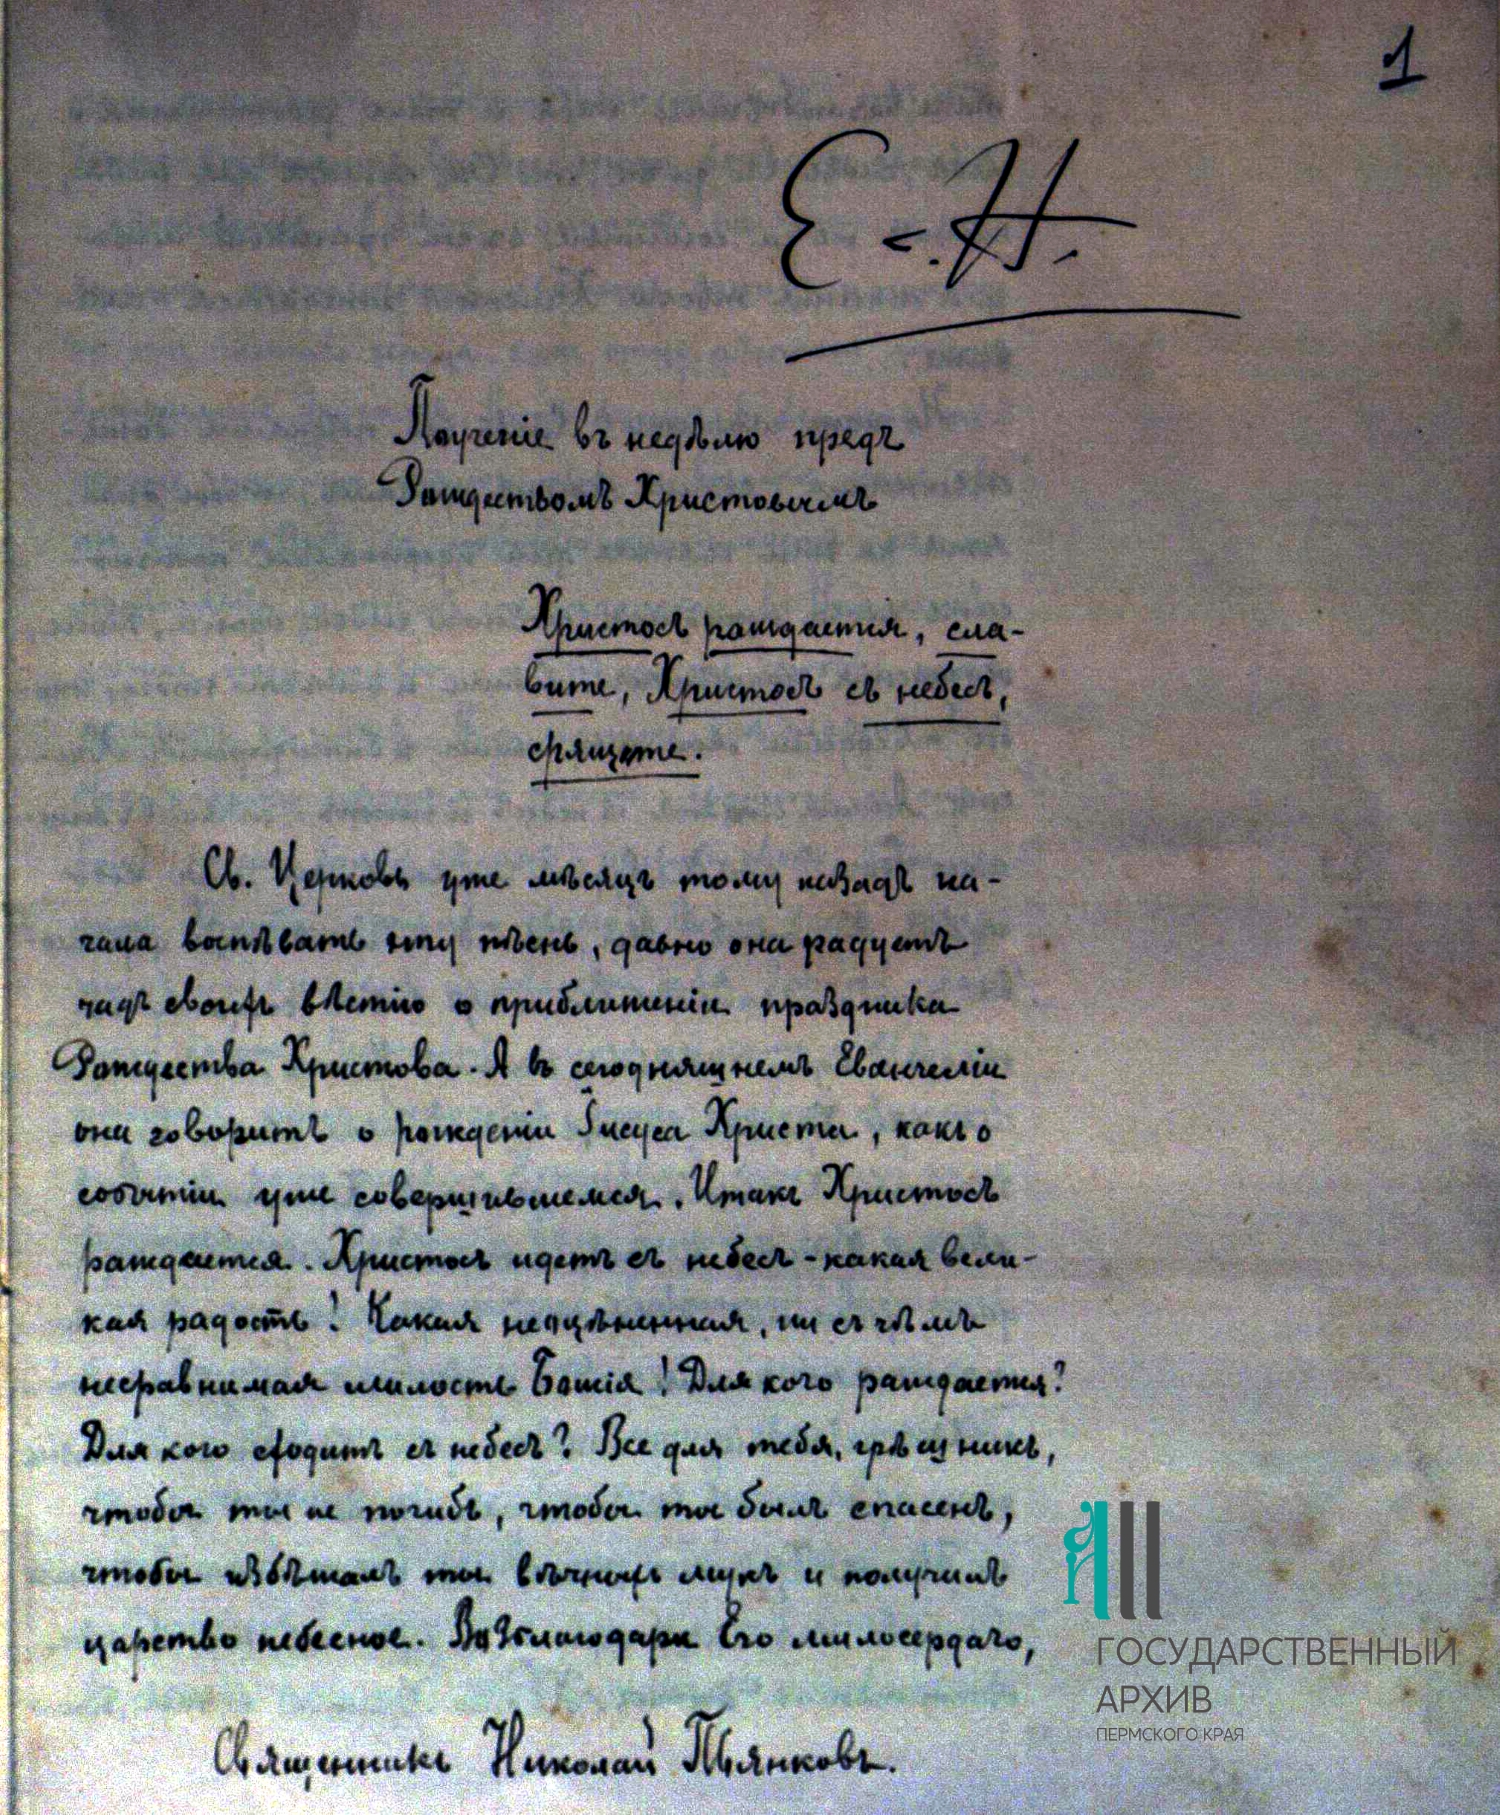 1
Е. Н.
Поученіе въ недѣлю предъ
Рождествомъ Христовымъ
Христосъ раждается, сла-
вите, Христосъ съ небесъ,
срящете.
Св. Церковь уже мѣсяцъ тому назадъ на-
чала воспѣвать эту пѣснь, давно она радуетъ
чадъ своихъ вѣстію о приближеніи праздника
Рождества Христова. А въ сегоднящнемъ Евангеліи
она говоритъ о рожденіи Іисуса Христа, какъ о
событіи уже совершившемся. Итакъ Христосъ
раждается. Христосъ идетъ съ небесъ - какая вели-
кая радость! Какая неоцѣненная, ни съ чѣмъ
несравнимая милость Божія! Для кого раждается?
Для кого сходитъ съ небесъ? Все для тебя, грѣщникъ,
чтобы ты не погибъ, чтобы ты былъ спасенъ,
чтобы избѣжалъ ты вѣчныхъ мукъ и получилъ
царство небесное. Возблагодари Его милосердаго,
Священникъ Николай Пьянковъ.
ГОСУДАРСТВЕННЫЙ
АРХИВ
ПЕРМСКОГО КРАЯ